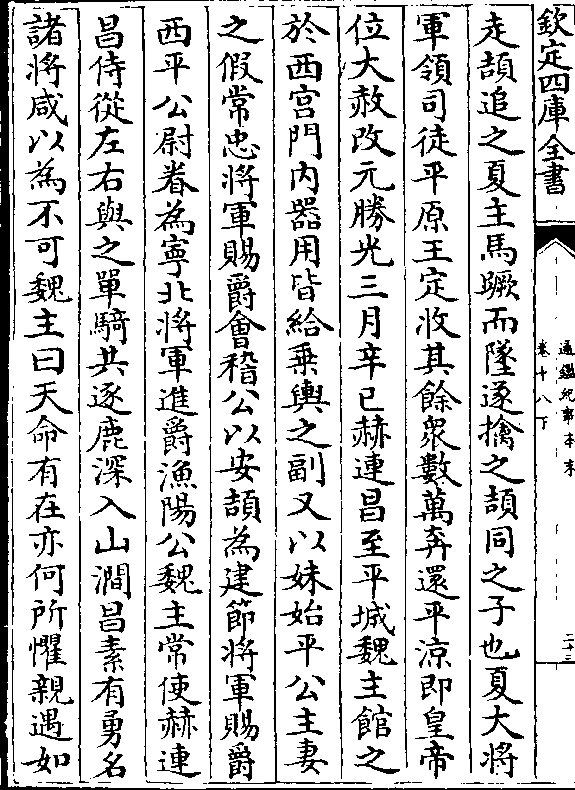 欽定四庫全書
通鑑紀事本末
卷十八下
二十三
走頡追之夏主馬蹶而墜遂擒之頡同之子也夏大將
軍領司徒平原王定收其餘衆數萬奔還平涼即皇帝
位大赦改元勝光三月辛巳赫連昌至平城魏主館之
於西宫門内器用皆給乗輿之副又以妹始平公主妻
之假常忠將軍賜爵會稽公以安頡為建節將軍賜爵
西平公尉眷為寧北將軍進爵漁陽公魏主常使赫連
昌侍從左右與之單騎共逐鹿深入山澗昌素有勇名
諸將咸以為不可魏主曰天命有在亦何所懼親遇如